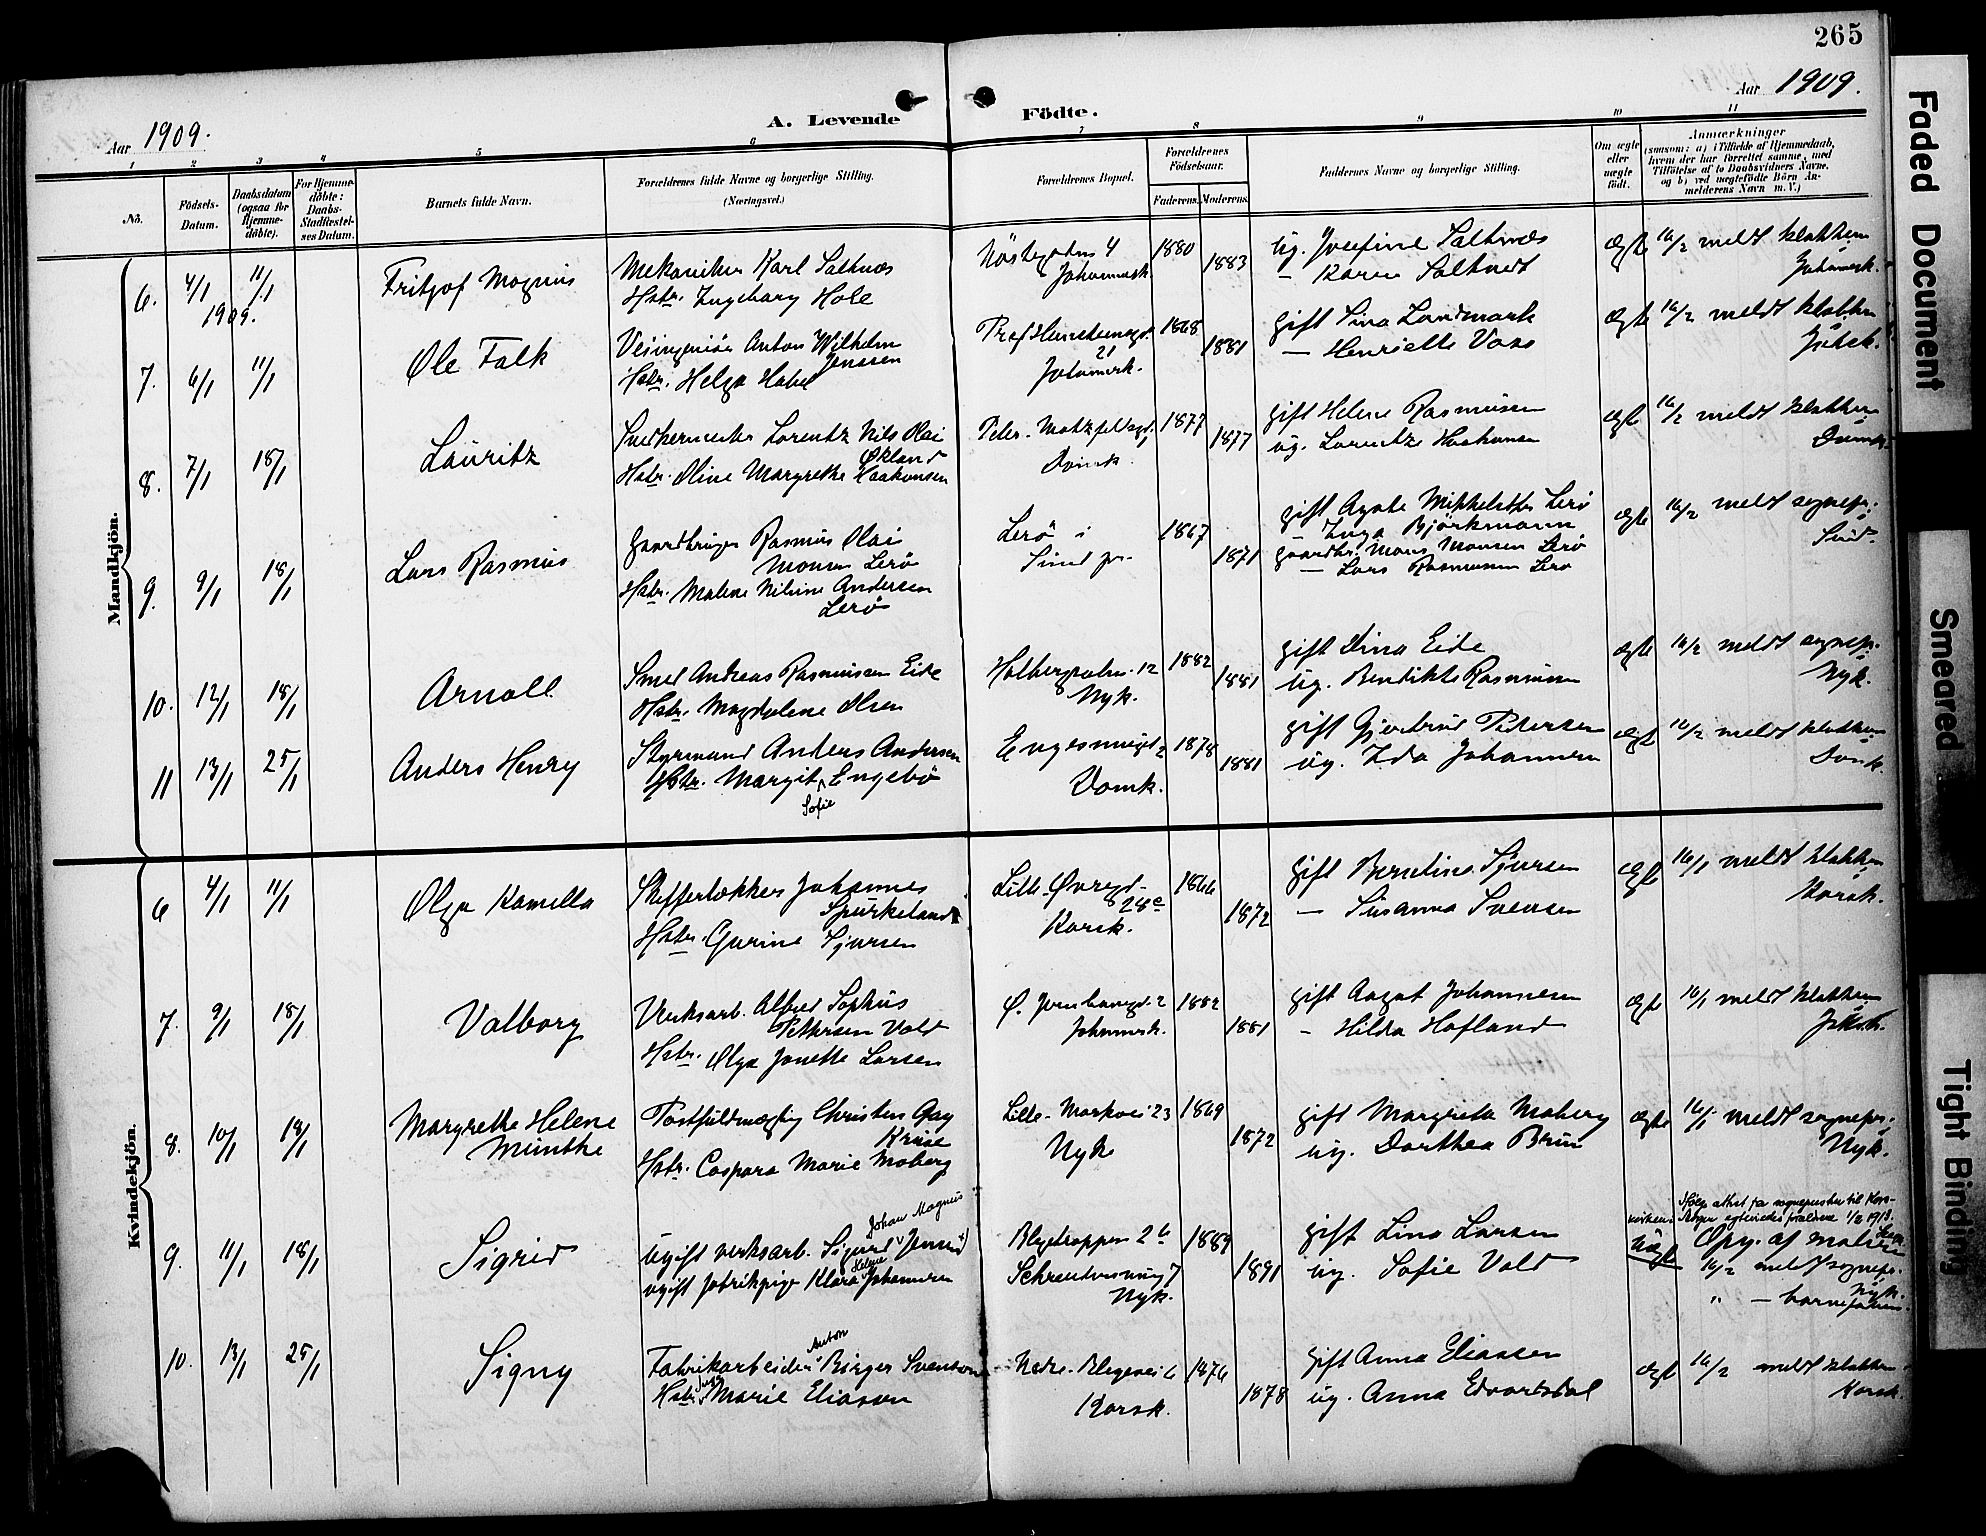 265
Aar 1909.
A. Levende Födte.
Aar 1909.
1 2 3 4 5 6 7 8 9 10 11
No.
Födsels-
Datum.
Daabsdatum
(ogsaa for
Hjemme-
döbte).
For Hjemme-
döbte:
Daabs-
Stadfæstel-
ses Datum.
Barnets fulde Navn.
Forældrenes fulde Navne og borgerlige Stilling.
(Næringsvei.)
Forældrenes Bopæl.
Forældrenes
Födselsaar.
Faderens. Moderens.
Faddernes Navne og borgerlige Stilling.
Om ægte
eller
uægte
født.
Anmærkninger
(saasom: a) i Tilfælde af Hjemmedaab,
hvem der har forrettet samme, med
Tilføielse af to Daabsvidners Navne,
og b) ved uægtefödte Börn An-
melderens Navn m. V.)
Mandkjön.
6. 4/1 1909. 11/1
Fritjof Magnus
Mekaniker Karl Saltnæs
Hstr. Ingeborg Hole
Nöstegaten 4
Johannesk.
1880
1883
ug. Josefine Saltnæs
— Karen Saltnæs
ægte
16/2 meldt klokken
Johannesk.
7. 6/1 11/1
Ole Falk
Veiingeniör Anton Wilhelm
Jenssen
Hstr. Helga Habel
21
Johannesk.
1868
1881
gift Lina Landmark
— Henriette Voss
ægte
16/2 meldt klokken
Johsk.
8. 7/1 18/1
Lauritz
Snedkermester Lorentz Nils Olai
Økland
Hstr. Oline Margrethe Haakonsen
Domk.
1877
1877
gift Helene Rasmussen
ug. Lorentze Haakonsen
ægte
16/2 meldt klokken
Domk.
9. 9/1 18/1
Lars Rasmus
Gaardbruger Rasmus Olai
Monsen Lerö
Hstr. Malene Nilsine Andersen
Lerö
Lerö i
Sund pr.
1867
1871
gift Agate Mikkelsen Lerö
— Inga Björkmann
Gaardbr. Mons Monsen Lerö
— Lars Rasmussen Lerö
ægte
16/2 meldt sognepr.
Sund.
10. 12/1 18/1
Arnold
Smed Andreas Rasmussen Eide
Hstr. Magdalene Olsen
Holbergsalm. 12
Nyk.
1882
1881
gift Dina Eide
ug. Bendikte Rasmussen
ægte
16/2 meldt sognepr.
Nyk.
11 13/1 25/1
Anders Henry
Styrmand Anders Andersen
Hstr. Margit Engebø
Sofie
Engesmuget 2
Domk.
1878
1881
gift Gjertrud Petersen
ug. Ida Johannesen
ægte
16/2 meldt klokken
Domk.
Kvindekjön.
6 4/1 11/1
Olga Kamilla
Skiffertækker Johannes
Spurkeland
Hstr. Gurine Sjursen
Lille Øvregd.
28c
Korsk.
1866
1872
gift Berntine Sjursen
— Susanna Svensen
ægte
16/1 meldt klokken
Korsk.
7. 9/1 18/1
Valborg
Verksarb. Alfred Sophus
Pettersen Vold
Hstr. Olga Jonette Larsen
Johannesk.
1882
1881
gift Aagot Johannesen
— Hilda Hofland
ægte
16/1 meldt klokken
Johsk.
8. 10/1 19/1
Margrethe Helene
Munthe
Postfuldmægtig Christen Gay
Kruse
Hstr. Caspara Marie Moberg
Lille-Markvei 23
Nyk
1869
1872
gift Margreta Moberg
ug. Dorthea Brun
ægte
16/1 meldt sognepr.
Nyk.
9. 11/1 18/1
Sigrid
Johan Magnus
ugift verksarb. Sigurd Jensen
Helene
ugift fabrikpige Klara Johannesen
Blegetrappen 2b
Nyk.
1889
1891
gift Lina Larsen
ug. Sofie Vold
uægte
Opg. af moderen
16/2 meldt sognepr.
Nyk.
" — barnefaderen.
10. 13/1 25/1
Signy
Anton
Fabrikarbeider Birger Svensson
Hstr. Marie Eliason
Nedre Blegevei 6
Korsk.
1876
1878
gift Anna Eliassen
ug. Anna Edvartsdal
ægt
16/2 meldt klokken
Korsk.
Faded Document
Smeared
Tight Binding